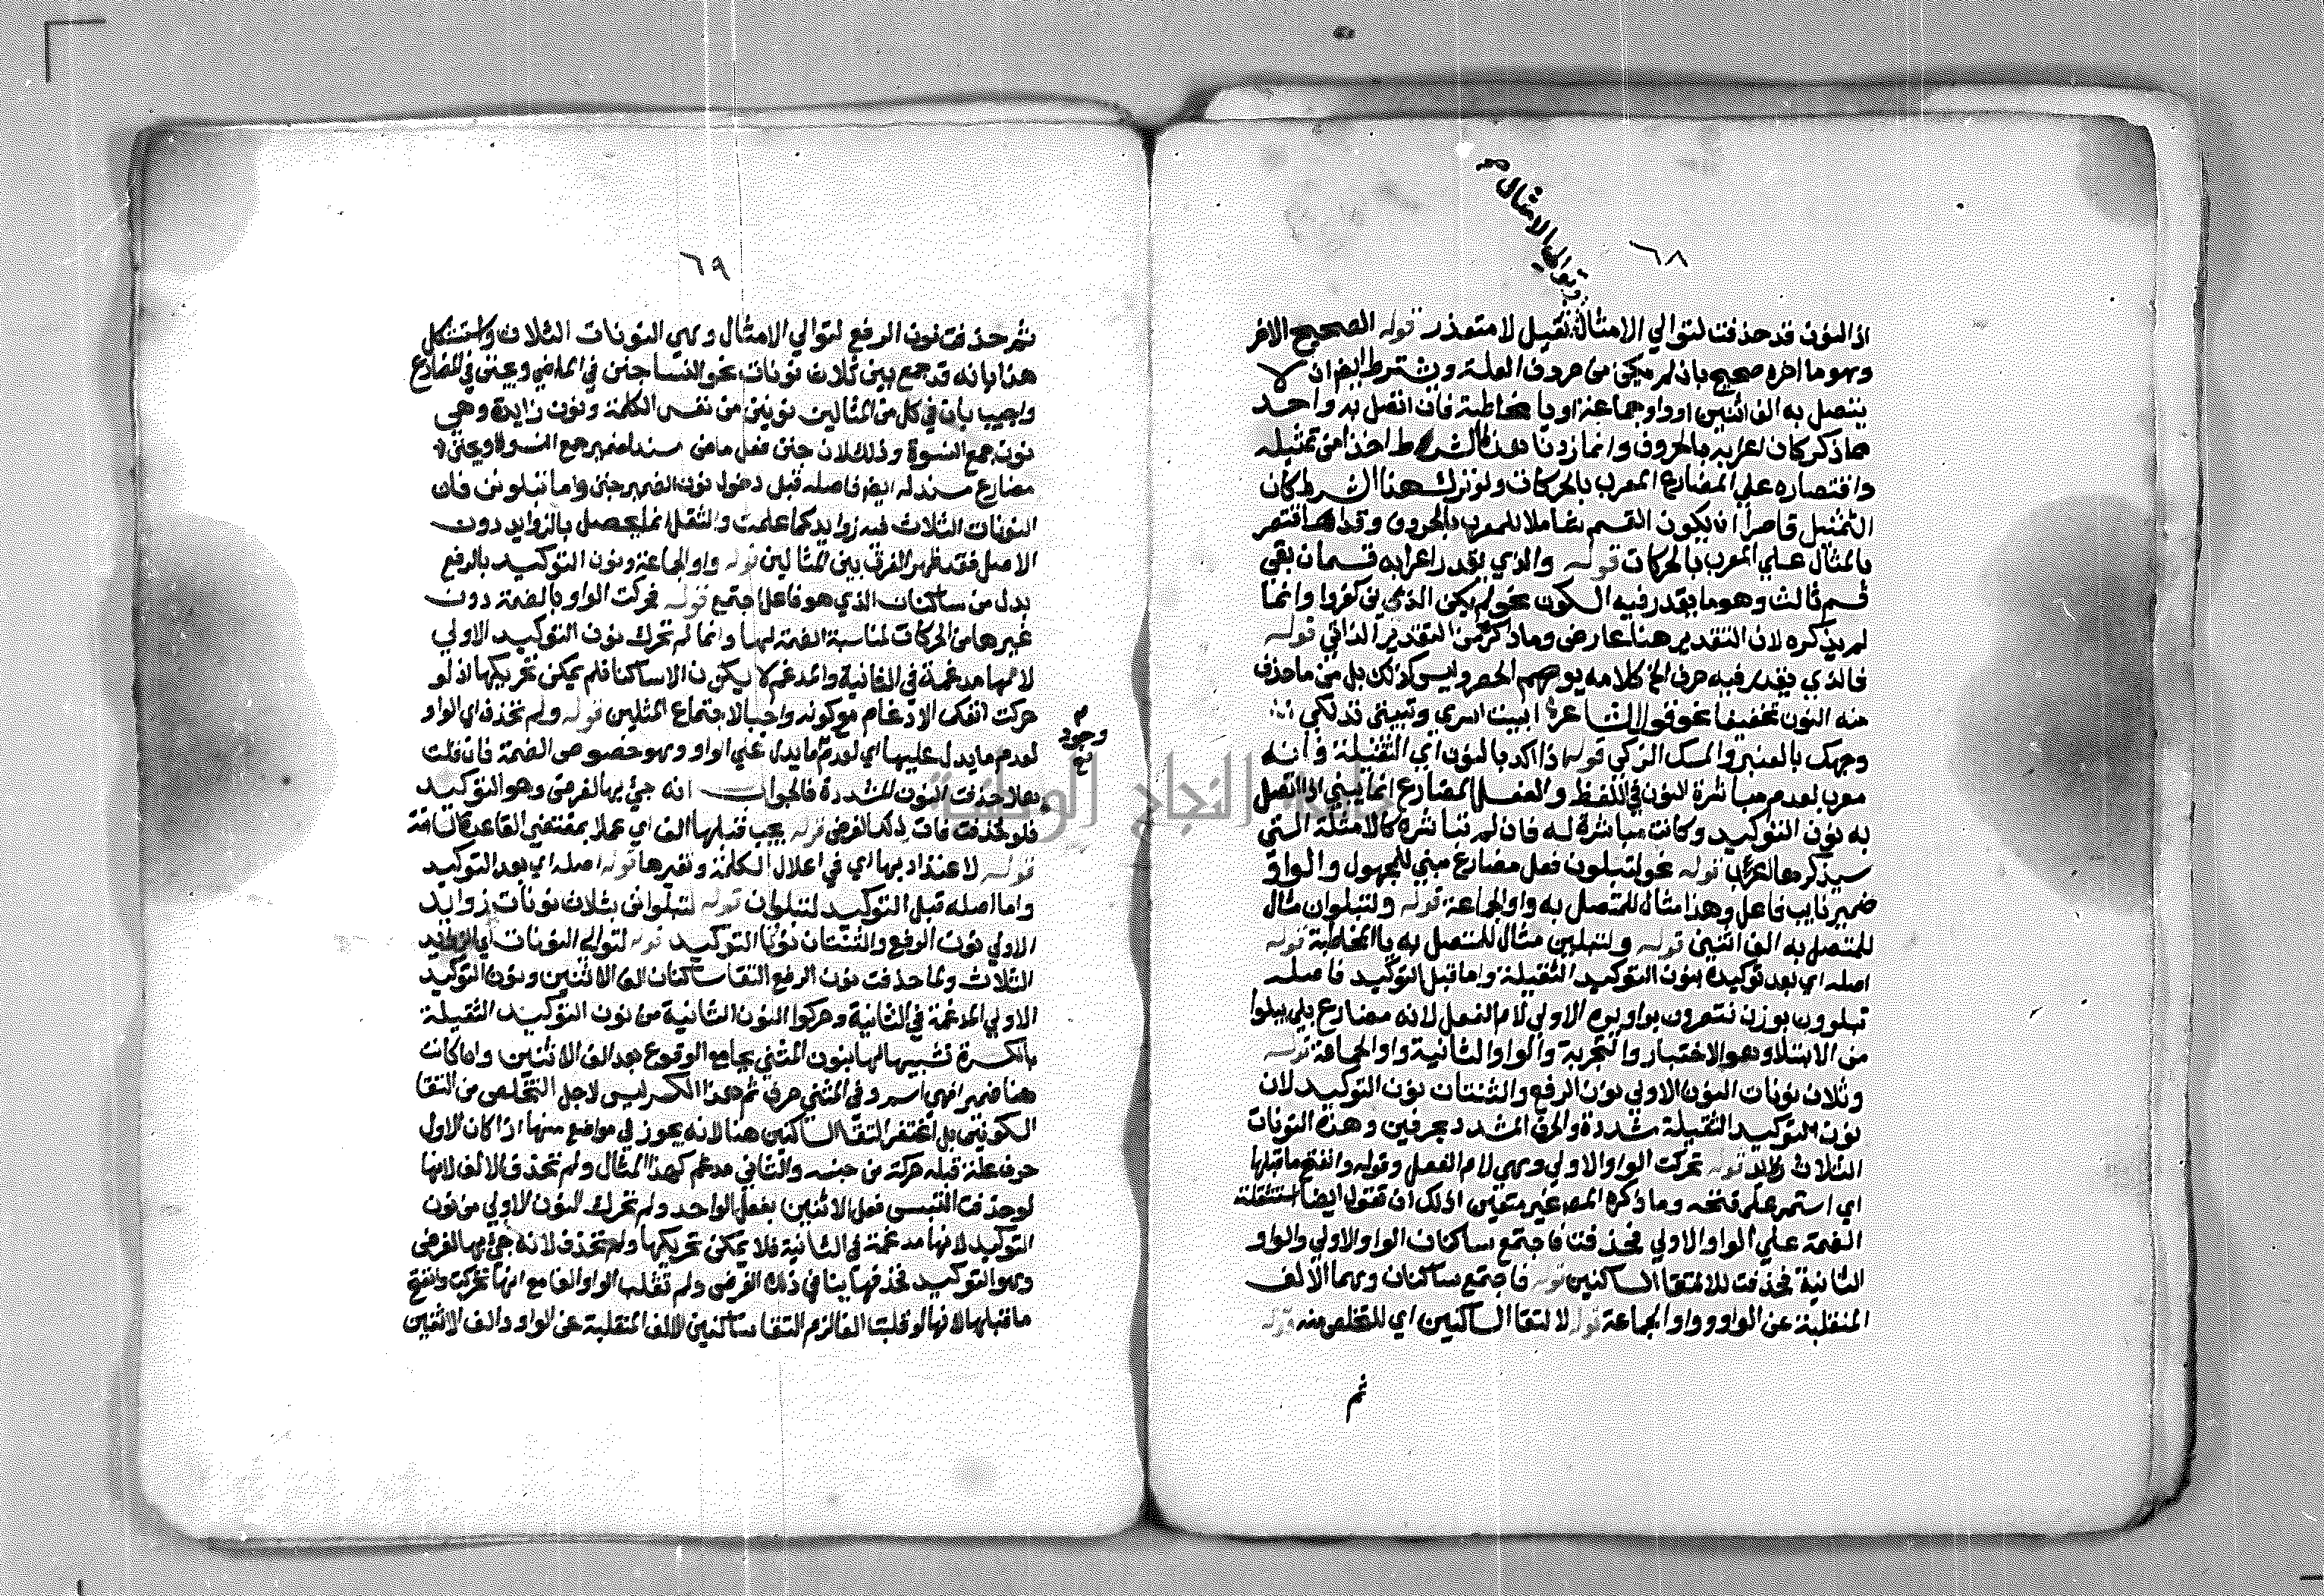 ٦٨
وتوالي الامثال صح
اذ النون قد حذفت لتوالي الامثال ثقيل لا متعذر قوله الصحيح الاخر
وهو ما اخره صحيح بان لم يكن من حروف العلة ويشترط ايضا ان لا
يتصل به الف اثنين او واو جماعة او يا مخاطبة فان اتصل به واحد
مما ذكر كان اعرابه بالحروف وانما زدنا هذا الشرط اخذا من تمثيله
واقتصاره علي المضارع المعرب بالحركات ولو ترك هذا الشرط كان
التمثيل قاصرا ان يكون القسم شاملا للمعرب بالحروف وقد اقتصر
بالمثال علي المعرب بالحركات قوله والذي يقدر اعرابه قسمان بقي
قسم ثالث وهو ما يقدر فيه السكون نحو لم يكن الذين كفروا وانما
لم يذكره لان التقدير هنا عارض وما ذكر من التقدير الذاتي قوله
فالذي يقدر فيه حرف الخ كلامه يوهم الحصر وليس كذلك بل من ما حذف
منه النون تخفيفا نحو قول الشاعر ابيت اسري وتبيتي تدلكي
وجهك بالعنبر والمسك الزكي قوله اذا اكد بالنون اي الثقيلة فانه
معرب لعدم مباشرة النون في اللفظ والفعل المضارع انما يبني اذا اتصل
به نون التوكيد وكانت مباشرة له فان لم تباشره كالامثلة التي
سيذكرها اعرب قوله نحو لتبلون فعل مضارع مبني للمجهول والواو
ضمير نايب فاعل وهذا مثال للمتصل به واو الجماعة قوله ولتبلوان مثال
للمتصل به الف اثنين قوله ولتبلين مثال للمتصل به يا المخاطبة قوله
اصله اي بعد توكيده بنون التوكيد الثقيلة واما قبل التوكيد فاصله
تبلوون بوزن تنصرون بواوين الاولي لام الفعل لانه مضارع بلي يبلوا
من الابتلا وهو الاختبار والتجربة والواو الثانية واو الجماعة قوله
وثلاث نونات النون الاولي نون الرفع والثنتان نون التوكيد لان
نون التوكيد الثقيلة مشددة والحرف المشدد بحرفين وهذه النونات
الثلاث زوايد قوله تحركت الواو الاولي وهي لام الفعل وقوله وانفتح ما قبلها
اي استمر علي فتحه وما ذكره المص غير متعين اذ لك ان تقول ايضا استثقلت
الضمة علي الواو الاولي فحذفت فاجتمع ساكنان الواو الاولي والواو
الثانية فحذفت لالتقا الساكنين قوله فاجتمع ساكنان وهما الالف
المنقلبة عن الواو وواو الجماعة قوله لالتقا الساكنين اي للتخلص منه قوله
ثم
٦٩
ثم حذفت نون الرفع لتوالي الامثال وهي النونات الثلاث واستشكل
هذا بانه قد جمع بين ثلاث نونات نحو النسا جنن في الماضي ويجنن في المضارع
واجيب بان في كل من المثالين نونين من نفس الكلمة ونون زايدة وهي
نون جمع النسوة وذلك لان جنن فعل ماض مسند لضمير جمع النسوة ويجنن
مضارع مسند له ايضا فاصله قبل دخول نون الضمير جن واما تبلونن فان
النونات الثلاث فيه زوايد كما علمت والثقل انما يحصل بالزوايد دون
الاصل فقد ظهر الفرق بين المثالين قوله واو الجماعة ونون التوكيد بالرفع
بدل من ساكنان الذي هو فاعل اجتمع قوله فحركت الواو بالضمة دون
غيرها من الحركات لمناسبة الضمة لها وانما لم تحرك نون التوكيد الاولي
لانها مدغمة في الثانية والمدغم لا يكون الا ساكنا فلم يمكن تحريكها اذ لو
حركت انفك الادغام مع كونه واجبا لاجتماع المثلين قوله ولم تحذف اي الواو
لعدم ما يدل عليها اي لعدم ما يدل علي الواو وهو خصوص الضمة فان قلت
م وجود نخ
هلا حذفت النون المشددة فالجواب انه جيء بها لغرض وهو التوكيد
فلو حذفت فات ذلك الغرض قوله يجب قبلها الف اي عملا بمقتضي القاعدة السابقة
قوله لاعتداد بها اي في اعلال الكلمة وتغيرها قوله اصله اي بعد التوكيد
واما اصله قبل التوكيد لتبلوان قوله لتبلوانن بثلاث نونات زوايد
الاولي نون الرفع والثنتان نونا التوكيد قوله لتوالي النونات اي الزوايد
الثلاث ولما حذفت نون الرفع التقا ساكنان الف الاثنين ونون التوكيد
الاولي المدغمة في الثانية وحركوا النون الثانية من نون التوكيد الثقيلة
بالكسرة تشبيها لها بنون المثني بجامع الوقوع بعد الف الاثنين وان كانت
هنا ضمير فهي اسم وفي المثني حرف ثم هذا الكسر ليس لاجل التخلص من التقا
السكونين بل اغتفر التقا الساكنين هنا لانه يجوز في مواضع منها اذا كان الاول
حرف علة قبله حركة من جنسه والثاني مدغم كهذا المثال ولم تحذف الالف لانها
لو حذفت التبس فعل الاثنين بفعل الواحد ولم تحرك النون الاولي من نون
التوكيد لانها مدغمة في الثانية فلا يمكن تحريكها ولم تحذف لانه جيء بها لغرض
وهو التوكيد فحذفها ينافي ذلك الغرض ولم تقلب الواو الفا مع انها تحركت وانفتح
ما قبلها لانها لو قلبت الفا لزم التقا ساكنين الالف المنقلبة عن الواو والف الاثنين
جامعة النجاح الوطنية